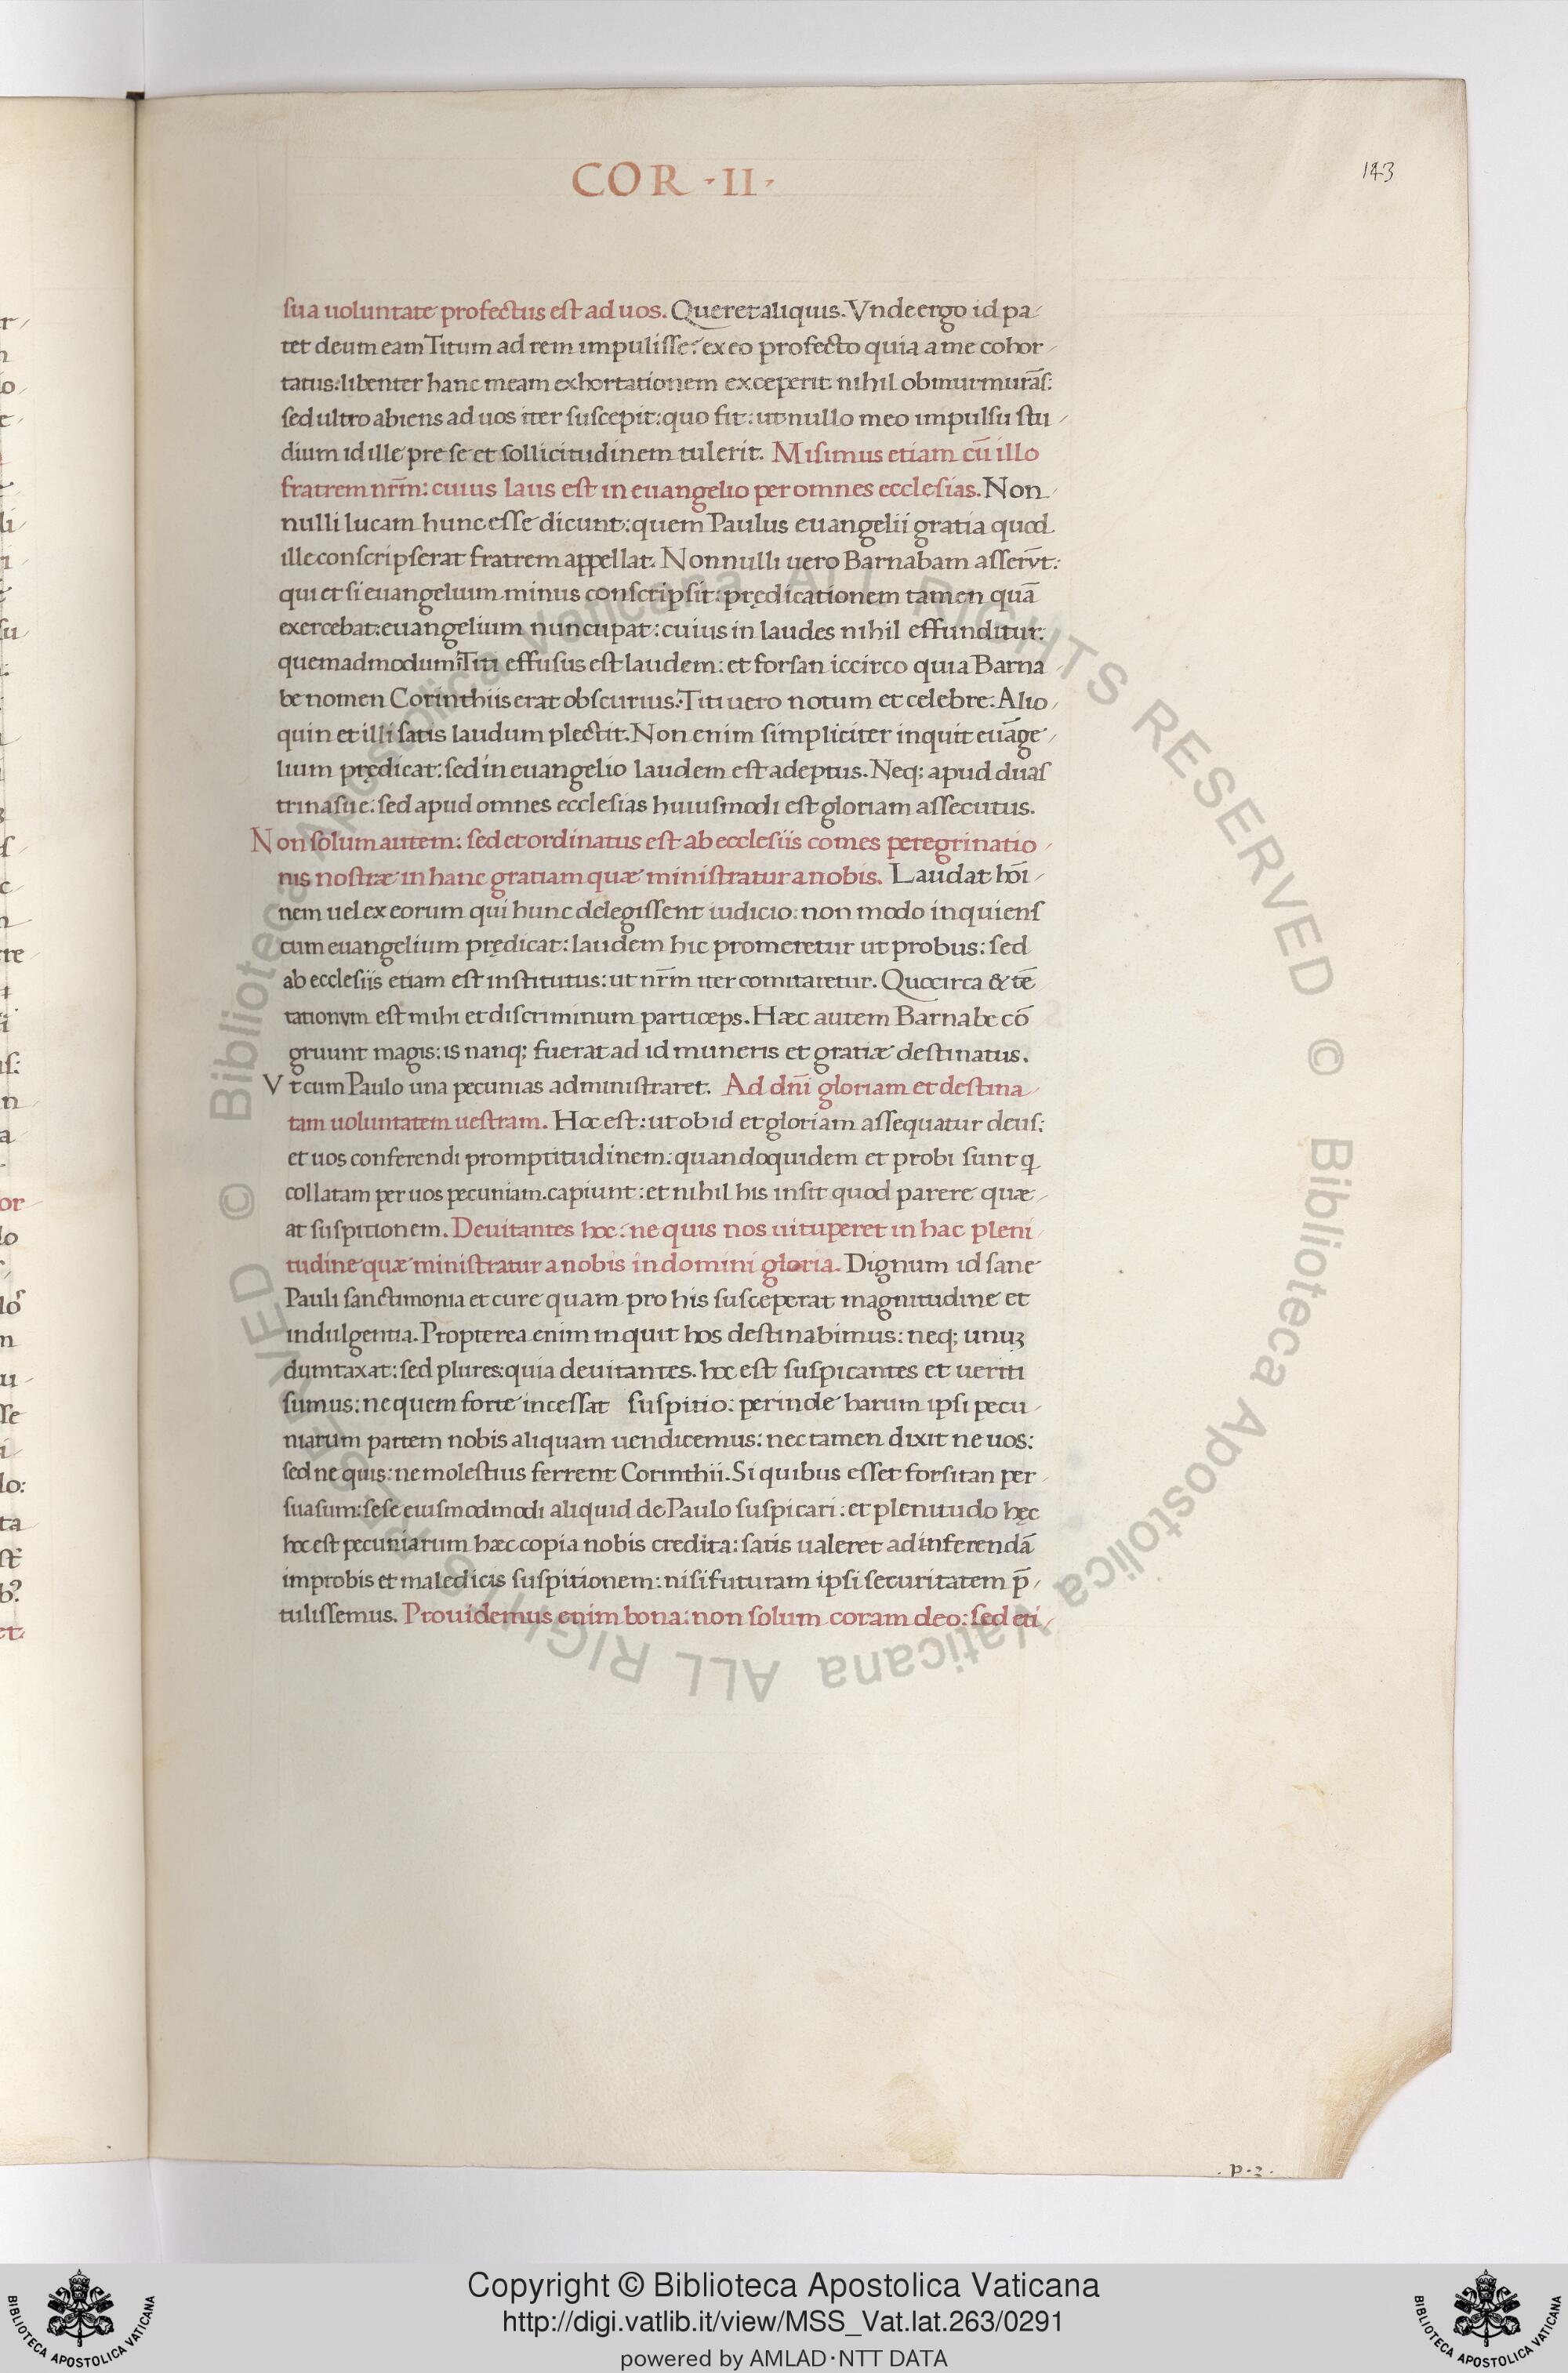 COR · II ·
143
sua uoluntate profectus est ad uos. Queret aliquis. Vnde ergo id pa-
tet deum eam Titum ad rem impulisse: ex eo profecto quia a me cohor-
tatus: libenter hanc meam exhortationem exceperit nihil obmurmurās:
sed ultro abiens ad uos iter suscepit: quo fit: ut nullo meo impulsu stu-
dium id ille pre se et sollicitudinem tulerit. Misimus etiam cū illo
fratrem nr̄m: cuius laus est in euangelio per omnes ecclesias. Non-
nulli lucam hunc esse dicunt: quem Paulus euangelii gratia quod
ille conscripserat fratrem appellat. Nonnulli uero Barnabam asserūt:
qui et si euangelium minus conscripsit: prędicationem tamen quā
exercebat: euangelium nuncupat: cuius in laudes nihil effunditur:
quemadmodum Titi effusus est laudem: et forsan iccirco quia Barna-
be nomen Corinthiis erat obscurius: Titi uero notum et celebre: Alio-
quin et illi satis laudum plectit. Non enim simpliciter inquit euāge-
lium prędicat: sed in euangelio laudem est adeptus. Neq; apud duas
trinasue: sed apud omnes ecclesias huiusmodi est gloriam assecutus.
Non solum autem: sed et ordinatus est ab ecclesiis comes peregrinatio-
nis nostræ in hanc gratiam quæ ministratur a nobis. Laudat hoī-
nem uel ex eorum qui hunc delegissent iudicio: non modo inquiens
cum euangelium prędicat: laudem hic promeretur ut probus: sed
ab ecclesiis etiam est institutus: ut nr̄m iter comitaretur. Quocirca & tē
tationum est mihi et discriminum particeps. Hæc autem Barnabe cō
gruunt magis: is nanq; fuerat ad id muneris et gratiæ destinatus.
Vt cum Paulo una pecunias administraret. Ad dn̄i gloriam et destina-
tam uoluntatem uestram. Hoc est: ut ob id et gloriam assequatur deus:
et uos conferendi promptitudinem: quandoquidem et probi sunt q
collatam per uos pecuniam capiunt: et nihil his insit quod parere quæ-
at suspitionem. Deuitantes hoc: ne quis nos uituperet in hac pleni-
tudine quæ ministratur a nobis in domini gloria. Dignum id sane
Pauli sanctimonia et cure quam pro his susceperat magnitudine et
indulgentia. Propterea enim inquit hos destinabimus: neq; unuȝ
dumtaxat: sed plures: quia deuitantes. hoc est suspicantes et ueriti
sumus: ne quem forte incessat suspitio: perinde harum ipsi pecu-
niarum partem nobis aliquam uendicemus: nec tamen dixit ne uos:
sed ne quis: ne molestius ferrent Corinthii. Si quibus esset forsitan per-
suasum: sese eiusmodmodi aliquid de Paulo suspicari: et plenitudo hęc
hoc est pecuniarum hæc copia nobis credita: satis ualeret ad inferendā
improbis et maledicis suspitionem: nisi futuram ipsi securitatem p̄-
tulissemus. Prouidemus enim bona: non solum coram deo: sed eti-
. p · 3 .
© Biblioteca Apostolica Vaticana ALL RIGHTS RESERVED © Biblioteca Apostolica Vaticana ALL RIGHTS RESERVED
BIBLIOTECA APOSTOLICA VATICANA
Copyright © Biblioteca Apostolica Vaticana
http://digi.vatlib.it/view/MSS_Vat.lat.263/0291
powered by AMLAD·NTT DATA
BIBLIOTECA APOSTOLICA VATICANA